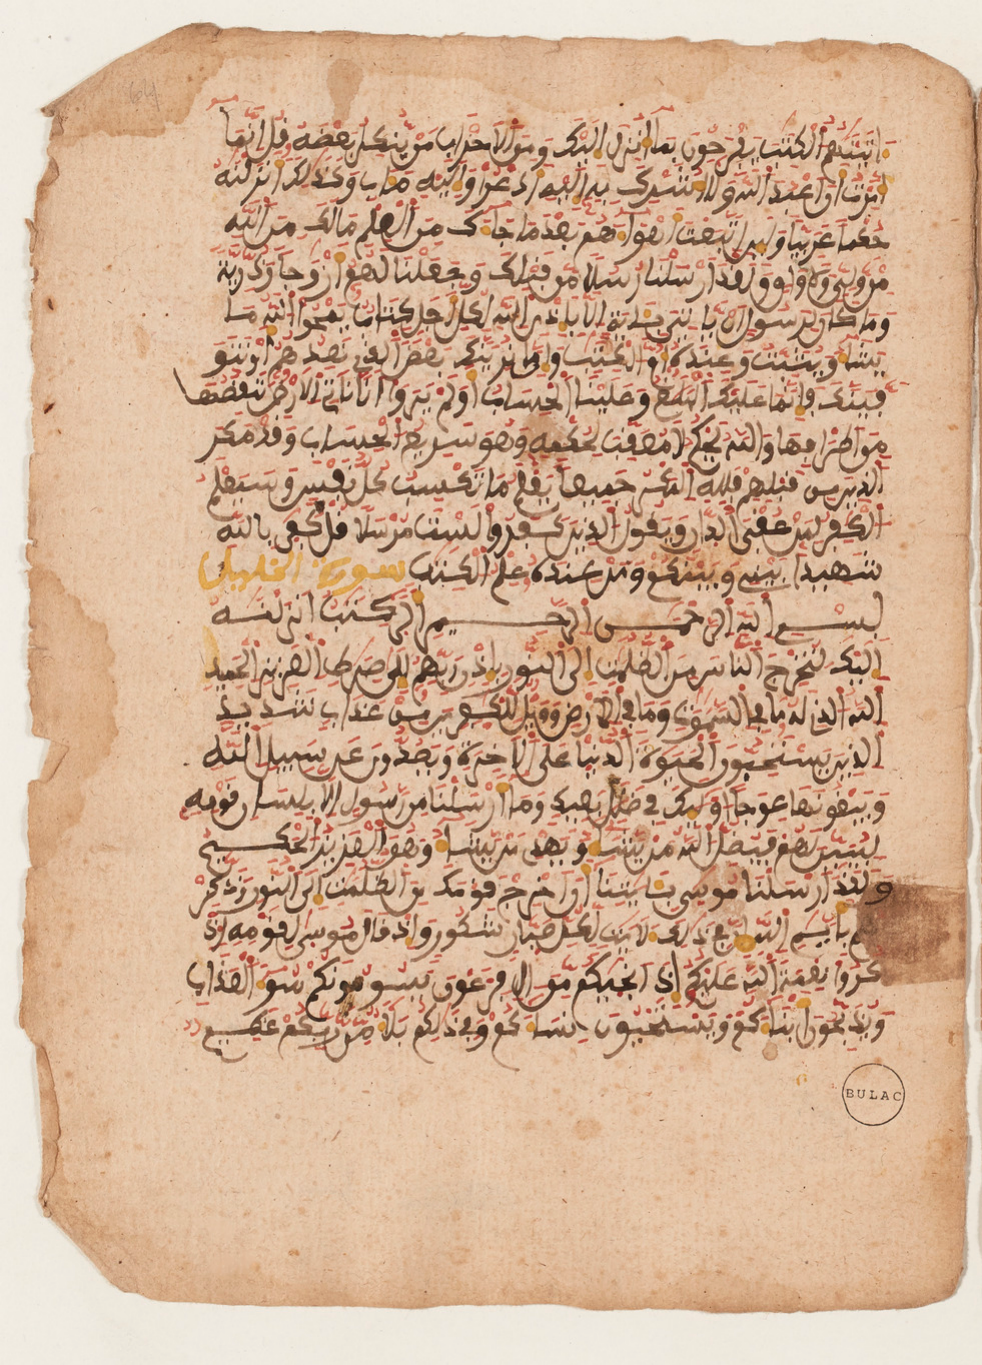 اتينهم الكتب يفرحون بما انزل اليك ومن الاحزاب من ينكر بعضه قل انما
امرت ان اعبد الله ولا اشرك به اليه ادعوا واليه ماب وكذلك انزلنه
حكما عربيا ولين اتبعت اهواهم بعد ما جاك من العلم مالك من الله
من ولي ولا واق ولقد ارسلنا رسلا من قبلك وجعلنا لهم ازوجا وذرية
وما كان لرسول ان ياتي باية الا باذن الله لكل اجل كتاب يمحوا الله ما
يشا ويثبت وعنده ام الكتب وان ما نرينك بعض الذي نعدهم او نتو
فينك فانما عليك البلغ وعلينا الحساب اولم يروا انا ناتي الارض ننقصها
من اطرافها والله يحكم لا معقب لحكمه وهو سريع الحساب وقد مكر
الذين من قبلهم فلله المكر جميعا يعلم ما تكسب كل نفس وسيعلم
الكفر لمن عقبى الدار ويقول الذين كفروا لست مرسلا قل كفى بالله
شهيدا بيني وبينكم ومن عنده علم الكتب سورة الخليل
بسم الله الرحمن الرحيم الر كتب انزلنه
اليك لتخرج الناس من الظلمت الى النور باذن ربهم الى صرط العزيز الحميد
الله الذي له ما في السموت وما في الارض وويل للكفرين من عذاب شديد
الذين يستحبون الحيوة الدنيا على الاخرة ويصدون عن سبيل الله
ويبغونها عوجا اوليك في ضلل بعيد وما ارسلنا من رسول الا بلسان قومه
ليبين لهم فيضل الله من يشا ويهدي من يشا وهو العزيز الحكيم
ولقد ارسلنا موسى بايتنا ان اخرج قومك من الظلمت الى النور وذكر
هم باييم الله ان في ذلك لايت لكل صبار شكور واذ قال موسى لقومه اذ
كروا نعمة الله عليكم اذ انجيكم من ال فرعون يسومونكم سو العذاب
ويذبحون ابناكم ويستحيون نساكم وفي ذلكم بلا من ربكم عظيم
BULAC